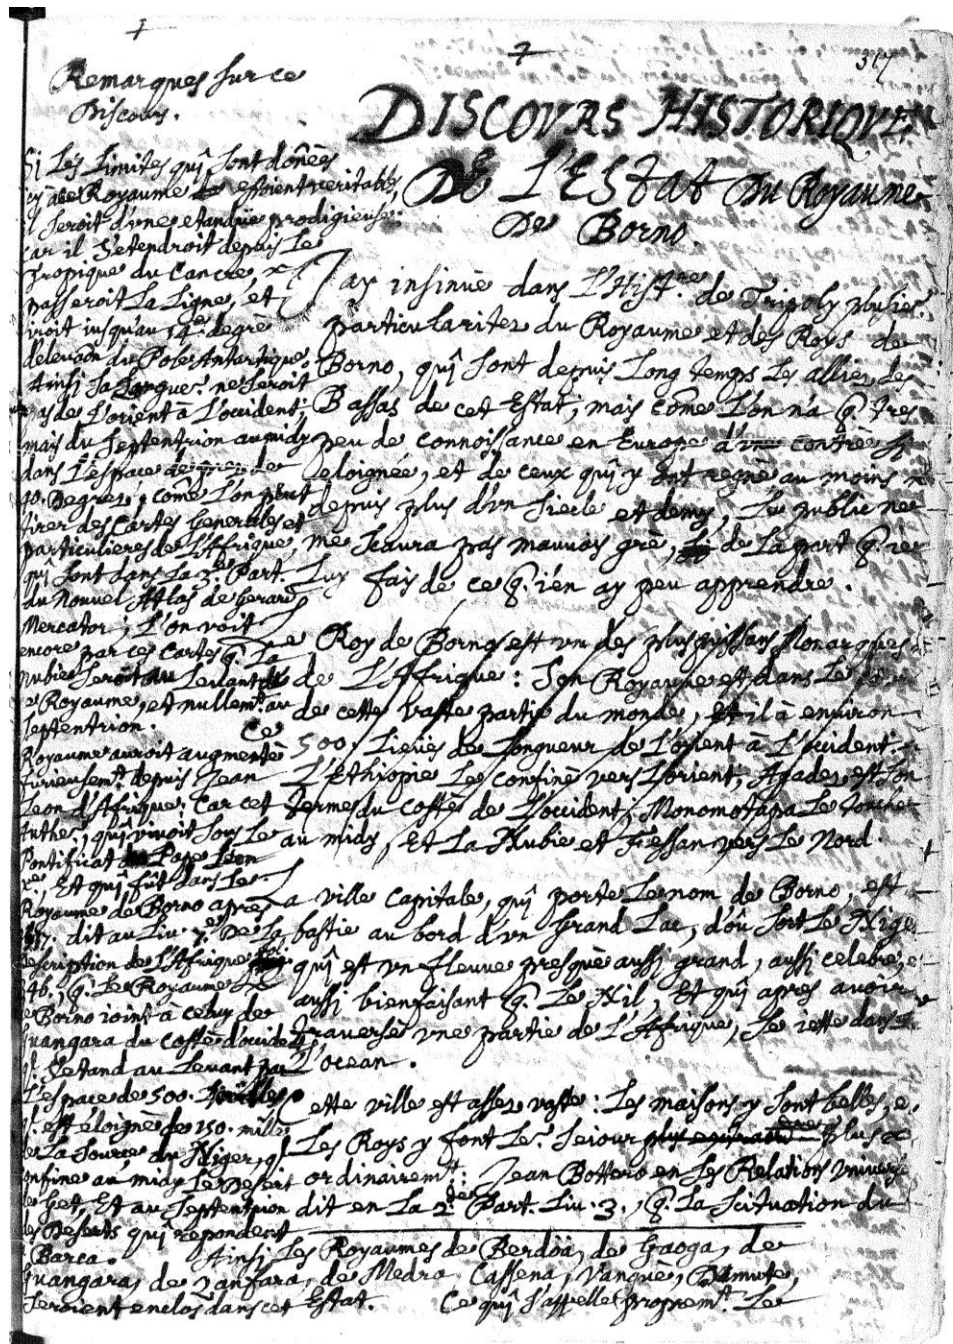 317
DISCOVRS HISTORIQVE
DE L'EStat Du Royaume
De Borno.
J'ay insinué dans L'Hist.re de Tripoly plusie.rs
particularitez du Royaume et des Roys de
Borno, quî sont depuis Long temps Les alliez des
Bassas de cet Estat; mais côme L'on n'a q. tres
peu de connoissance en Europe d'une contrée si
eloignée, et de ceux quî y ont regné au moins
depuis plus d'vn siecle et demy, Le public ne
me sçaura pas mauvais gré, de La part q. ie
Luy fais de ce q. i'en ay peu apprendre.
Le Roy de Borno est vn des plus puissans Monarques
de L'Afrique: Son Royaume est dans Le
de cette vaste partie du monde, Et il à environ
500. Lieües de Longueur de L'orient à L'occident.
L'Ethiopie Le confine vers L'orient, Agades, est son
terme du costé de L'occident; Monomotapa Le touche
au midy, Et La Nubie et Fessan vers Le Nord.
La ville Capitale, quî porte Le nom de Borno, est
bastie au bord d'vn Grand Lac, d'où sort Le Niger
quî est vn fleuve presque aussi grand, aussi celebre, et
aussi bienfaisant q. Le Nil, Et quî apres avoir
traversé vne partie de L'Afrique, se iette dans
L'ocean.
Cette ville est assez vaste: Les maisons y sont belles, et
Les Roys y font Le.r seiour plus
ordinairem.t: Jean Bottero en ses Relations Univers.
dit en La 2.de Part. Liv. 3., q. La scituation du
Remarques sur ce
Discours.
Si Les Limites quî sont données
icy à ce Royaume estoient veritables,
il seroit d'une etandue prodigieuse:
Car il s'etendroit depuis Le
Tropique du Cancre,
passeroit La Ligne, et
iroit iusqu'au 14.e degré
d'elevaôn du Pole Antartique;
Ainsi sa Longue.r ne seroit
pas de L'orient à L'occident;
mais du septentrion au midy
dans L'espace de
40. Degrez, côme L'on peut
tirer des Cartes Generales et
particulieres de L'Afrique,
quî sont dans La 3.e Part.
du Nouvel Atlas de Gerard
Mercator; L'on voit
encore par ces Cartes q. La
Nubie seroit au Levant
de Royaume, et nullem.t au
septentrion. Ce
Royaume auroit augmenté
furieusem.t depuis Jean
Leon d'Afrique: Car cet
Authe.r, quî vivoit sous Le
Pontificat Pape Leon
x.e Et quî fut dans Le
Royaume de Borno apres
dit au Liv. 7.e De La
description de L'Afrique
346, q. Le Royaume
de Borno ioint à celuy de
Guangara du costé d'occident,
s'etand au Levant par
L'espace de 500. milles
est éloigné de 150. milles
de La source du Niger, q.
confine au midy Le Desert
de Get, Et au septentrion
des Deserts quî repondent
à Barca. Ainsi Les Royaumes de Berdöa, de Gaoga, de
Guangara, de Zanfara, de Medra, Cassena, Vangue, Damute,
seroient enclos dans cet Estat. Ce quî s'appelle proprem.t Le